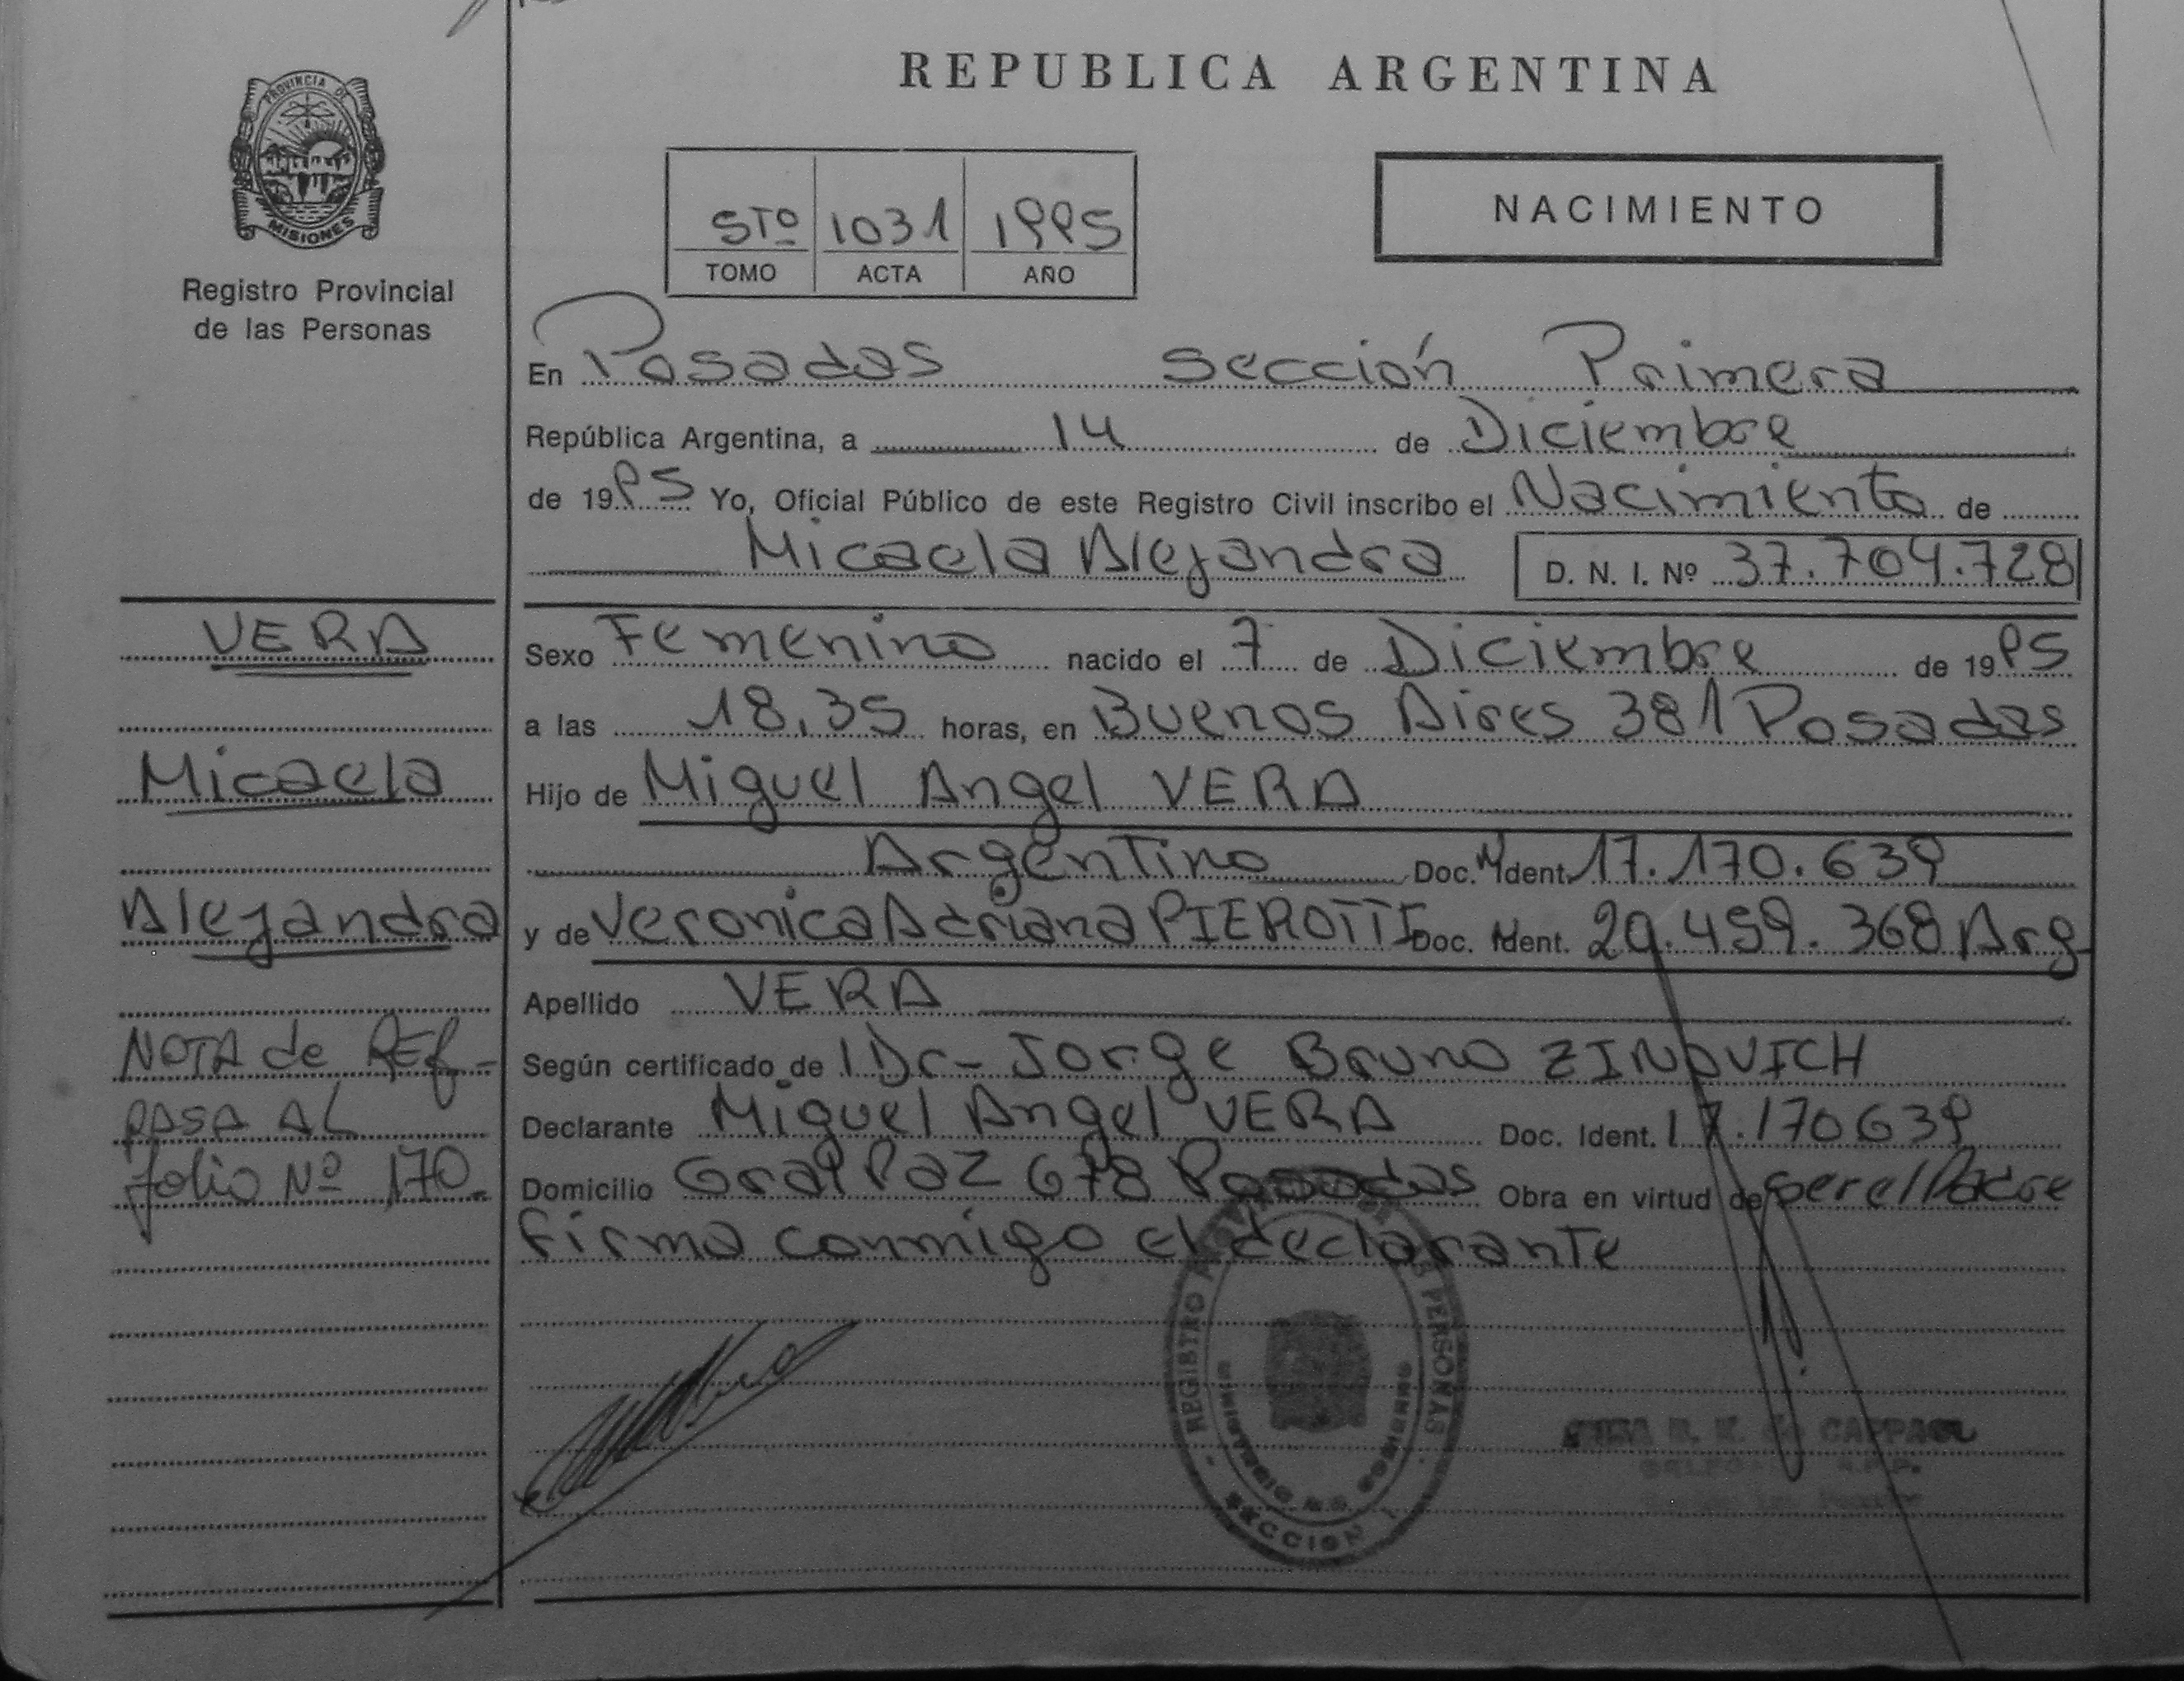 REPUBLICA ARGENTINA
PROVINCIA DE
MISIONES
Registro Provincial
de las Personas
5to 1031 1995
TOMO ACTA AÑO
NACIMIENTO
En Posadas Sección Primera
República Argentina, a 14 de Diciembre
de 1995 Yo, Oficial Público de este Registro Civil inscribo el Nacimiento de
Micaela Alejandra D. N. I. Nº 37.704.728
VERA
Micaela
Alejandra
NOTA de REF-
PASA AL
folio Nº 170.
Sexo Femenino nacido el 7 de Diciembre de 1995
a las 18,35 horas, en Buenos Aires 381 Posadas
Hijo de Miguel Angel VERA
Argentino Doc. Ident. 17.170.639
y de Veronica Adriana PIEROTTI Doc. Ident. 20.459.368 Arg
Apellido VERA
Según certificado de Dr- Jorge Bruno ZINOVICH
Declarante Miguel Angel VERA Doc. Ident. 17.170639
Domicilio Gral Paz 698 Posadas Obra en virtud de ser el Padre
firma conmigo el declarante
REGISTRO PERSONAS
MINISTERIO DE GOBIERNO
SECCION